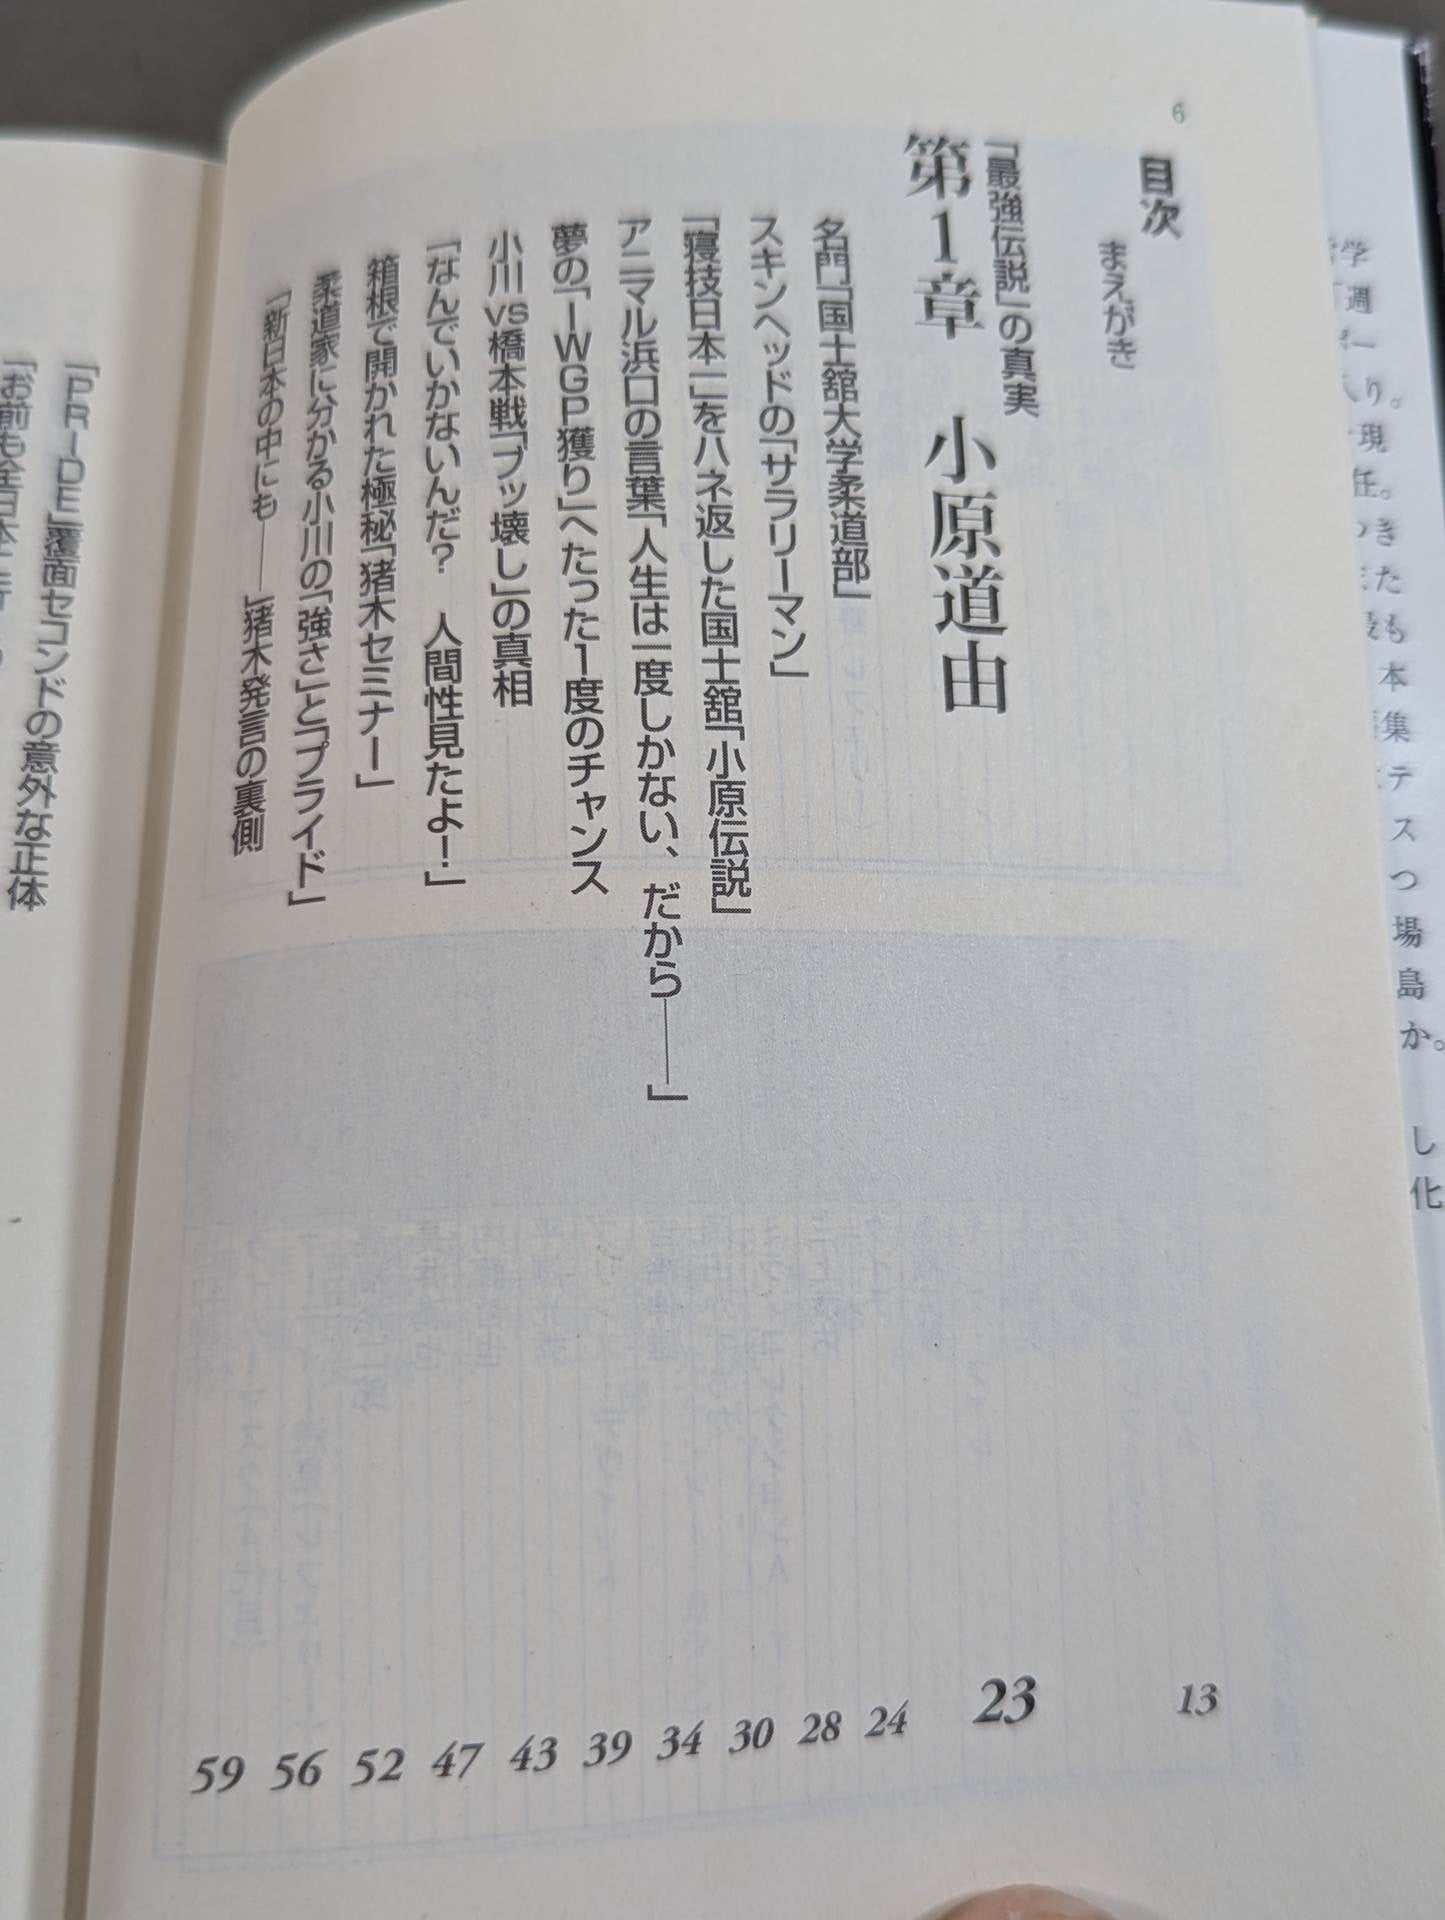 6
目次
まえがき
13
「最強伝説」の真実
第1章 小原道由
23
名門「国士舘大学柔道部」
24
スキンヘッドの「サラリーマン」
28
「寝技日本一」をハネ返した国士舘「小原伝説」
30
アニマル浜口の言葉「人生は一度しかない、だから――」
34
夢の「IWGP獲り」へたった1度のチャンス
39
小川vs橋本戦「ブッ壊し」の真相
43
「なんでいかないんだ? 人間性見たよ!」
47
箱根で開かれた極秘「猪木セミナー」
52
柔道家に分かる小川の「強さ」と「プライド」
56
「新日本の中にも――」猪木発言の裏側
59
「PRIDE」覆面セコンドの意外な正体
「お前も全日本に